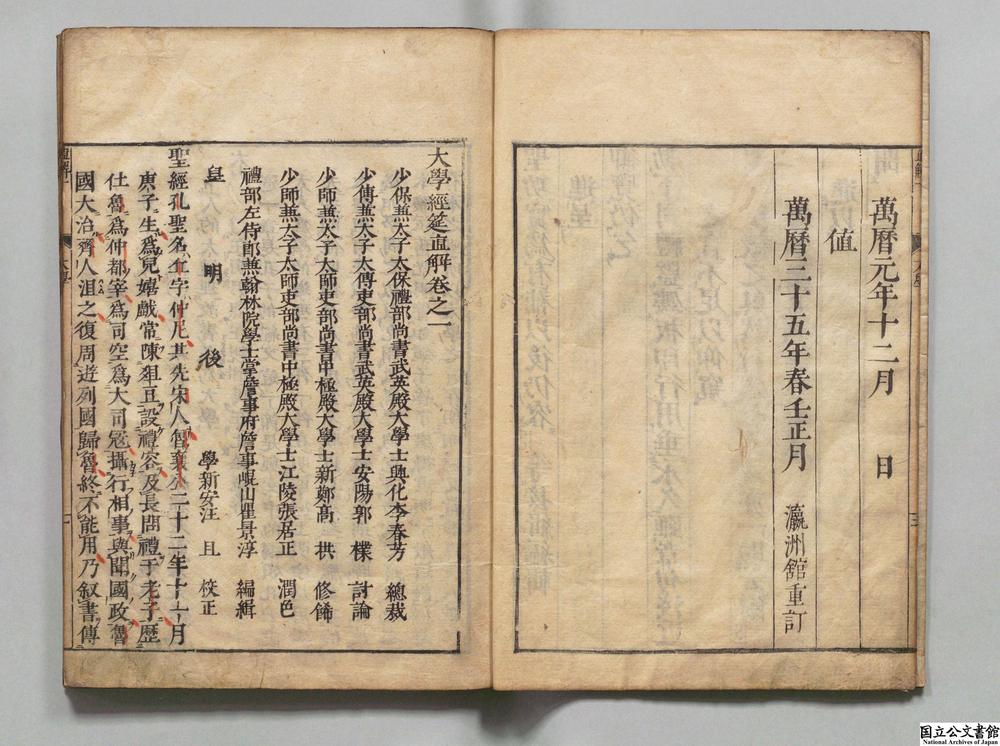 萬曆元年十二月 日
值
萬曆三十五年春王正月 瀛洲館重訂
大學經筵直解卷之一
少保兼太子太保禮部尚書武英殿大學士興化李春芳 總裁
少傅兼太子太傅吏部尚書武英殿大學士安陽郭 樸 討論
少師兼太子太師吏部尚書中極殿大學士新鄭高 拱 修飾
少師兼太子太師吏部尚書中極殿大學士江陵張居正 潤色
禮部左侍郎兼翰林院學士掌詹事府詹事崐山瞿景淳 編緝
皇 明 後 學新安注 且 校正
聖經孔聖名丘字仲尼其先宋人智襄公二十二年十一月
庚子生為兒嬉戲常陳俎豆設禮容及長問禮于老子歷
仕魯為仲都宰為司空為大司寇攝行相事與聞國政魯
國大治齊人沮之復周遊列國歸魯終不能用乃叙書傳
直解一
大學
国立公文書館
National Archives of Japan